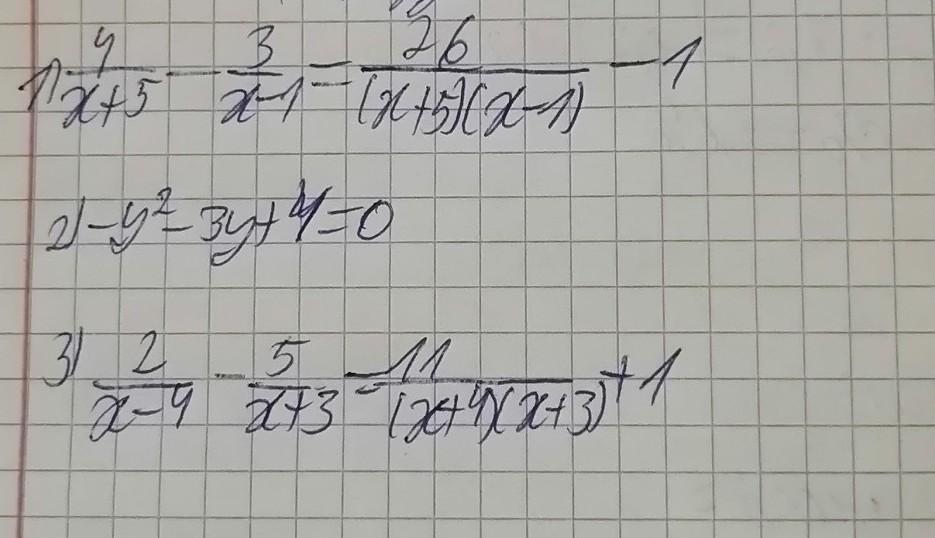 1) 4/(x+5) - 3/(x-1) = 26/((x+5)(x-1)) - 1
2) -y² - 3y + 4 = 0
3) 2/(x-4) - 5/(x+3) = 11/((x+4)(x+3)) + 1